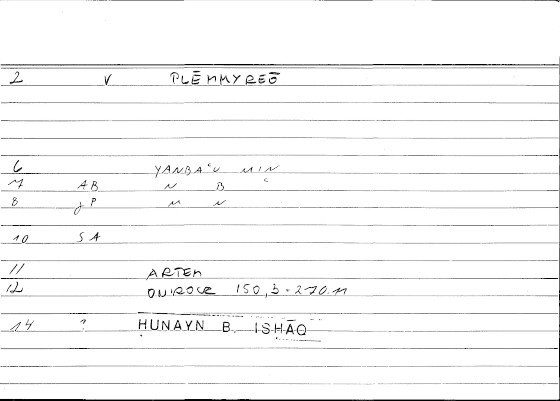 2 V PLĒMMYREŌ
6 YANBAʿU MIN
7 AB N B ʿ
8 JP M N
10 SA
11 ARTEM
12 ONIROCR 150, 3 - 270.11
14 ? HUNAYN B. ISHĀQ